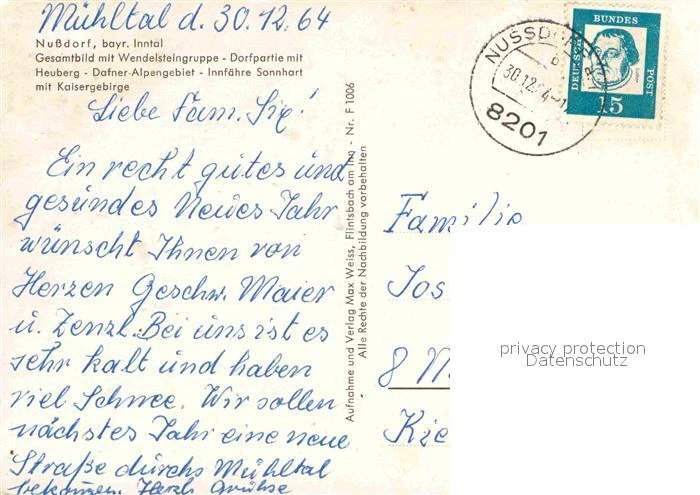 Mühltal d. 30.12.64
Nußdorf, bayr. Inntal
Gesamtbild mit Wendelsteingruppe - Dorfpartie mit
Heuberg - Dafner-Alpengebiet - Innfähre Sonnhart
mit Kaisergebirge
Liebe Fam. Six!
Ein recht gutes und
gesundes Neues Jahr
wünscht Ihnen von
Herzen Geschw. Maier
u. Zenzl. Bei uns ist es
sehr kalt und haben
viel Schnee. Wir sollen
nächstes Jahr eine neue
Straße durchs Mühltal
bekommen. Herzl. Grüße
Aufnahme und Verlag Max Weiss, Flintsbach am Inn - Nr. F 1006
Alle Rechte der Nachbildung vorbehalten
NUSSDORF
30.12.64-1
8201
DEUTSCHE
BUNDES
POST
15
Familie
Jos
8 M
Kie
privacy protection
Datenschutz